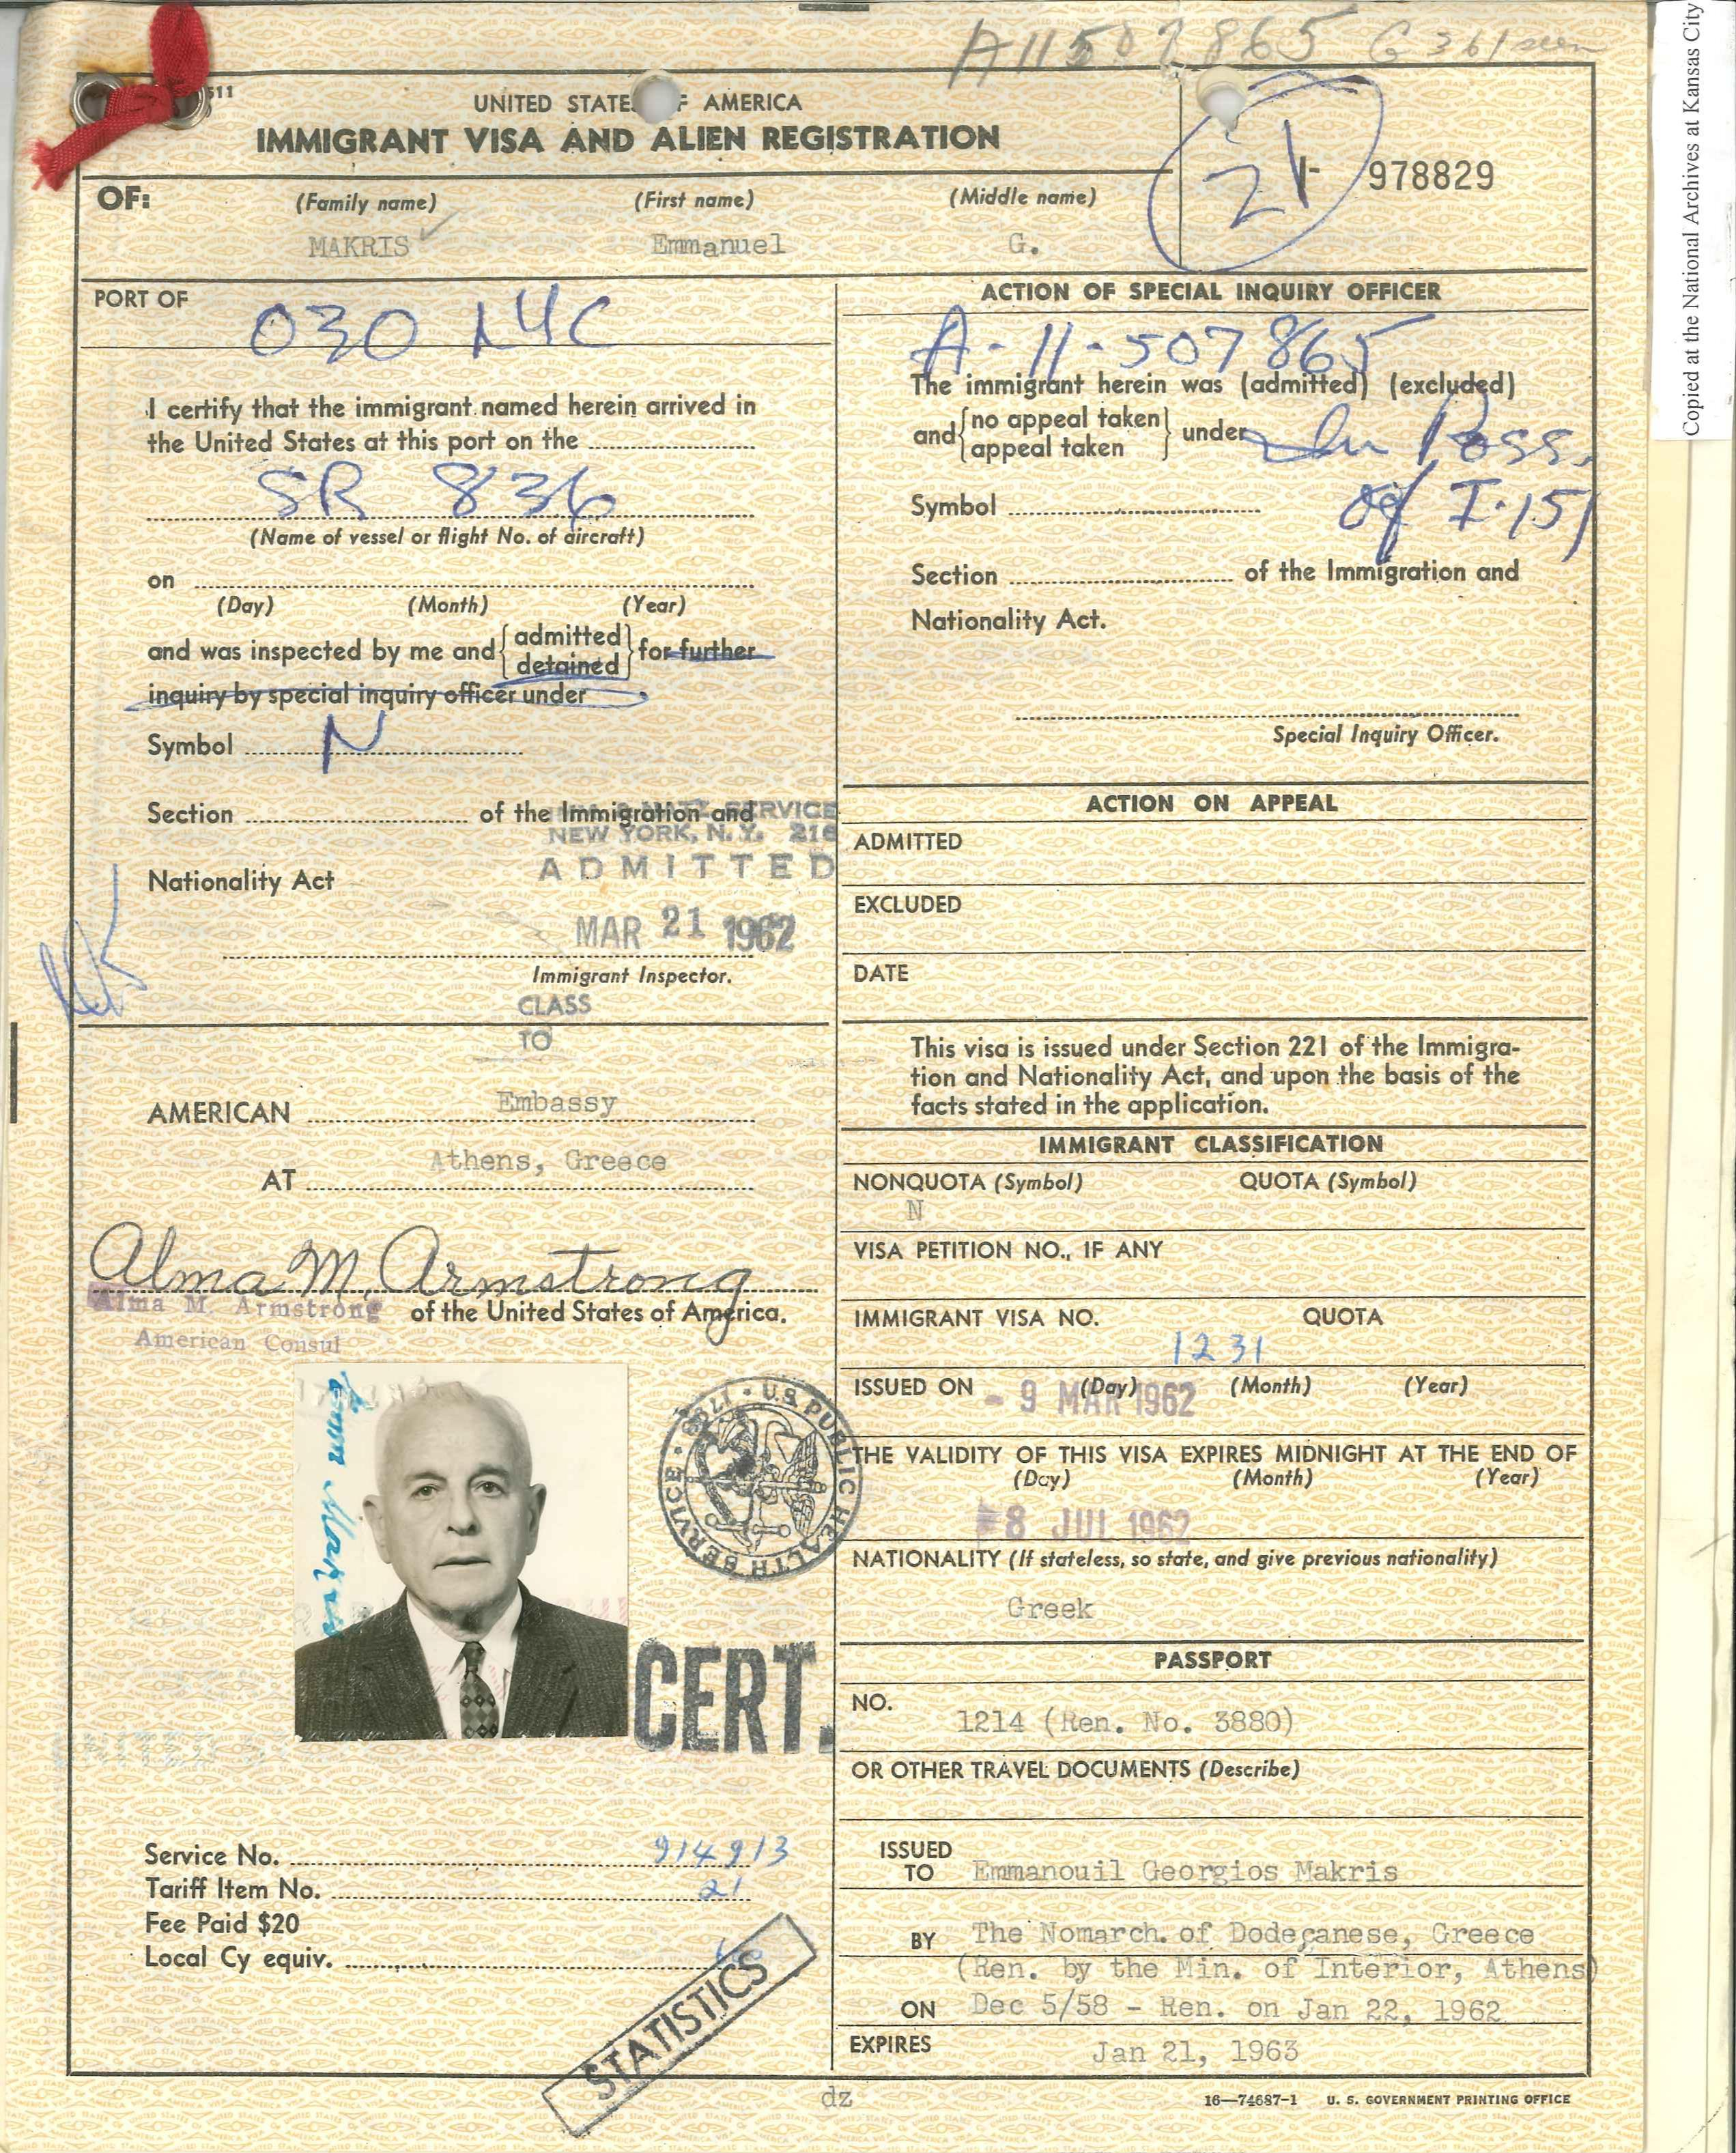 A11507865 G 361 seen
511
UNITED STATES OF AMERICA
IMMIGRANT VISA AND ALIEN REGISTRATION
21
I- 978829
OF:
(Family name) (First name) (Middle name)
MAKRIS Emmanuel G.
PORT OF
030 NYC
I certify that the immigrant named herein arrived in
the United States at this port on the
SR 836
(Name of vessel or flight No. of aircraft)
on
(Day) (Month) (Year)
and was inspected by me and { admitted detained } for further
inquiry by special inquiry officer under
Symbol N
Section of the Immigration and
Nationality Act
& NATZ SERVICE
NEW YORK, N. Y. 216
ADMITTED
MAR 21 1962
Immigrant Inspector.
CLASS
TO
AMERICAN Embassy
AT Athens, Greece
Alma M. Armstrong
Alma M. Armstrong of the United States of America.
American Consul
U.S. PUBLIC HEALTH SERVICE · 1798
CERT.
Service No. 914913
Tariff Item No. 21
Fee Paid $20
Local Cy equiv.
STATISTICS
ACTION OF SPECIAL INQUIRY OFFICER
A-11-507865
The immigrant herein was (admitted) (excluded)
and { no appeal taken appeal taken } under
In Poss.
of I-151
Symbol
Section of the Immigration and
Nationality Act.
Special Inquiry Officer.
ACTION ON APPEAL
ADMITTED
EXCLUDED
DATE
This visa is issued under Section 221 of the Immigra-
tion and Nationality Act, and upon the basis of the
facts stated in the application.
IMMIGRANT CLASSIFICATION
NONQUOTA (Symbol) QUOTA (Symbol)
N
VISA PETITION NO., IF ANY
IMMIGRANT VISA NO. QUOTA
1231
ISSUED ON (Day) (Month) (Year)
- 9 MAR 1962
THE VALIDITY OF THIS VISA EXPIRES MIDNIGHT AT THE END OF
(Day) (Month) (Year)
8 JUL 1962
NATIONALITY (If stateless, so state, and give previous nationality)
Greek
PASSPORT
NO.
1214 (Ren. No. 3880)
OR OTHER TRAVEL DOCUMENTS (Describe)
ISSUED
TO Emmanouil Georgios Makris
BY The Nomarch. of Dodecanese, Greece
(Ren. by the Min. of Interior, Athens)
ON Dec 5/58 - Ren. on Jan 22, 1962
EXPIRES Jan 21, 1963
dz
16—74687-1 U. S. GOVERNMENT PRINTING OFFICE
Copied at the National Archives at Kansas City